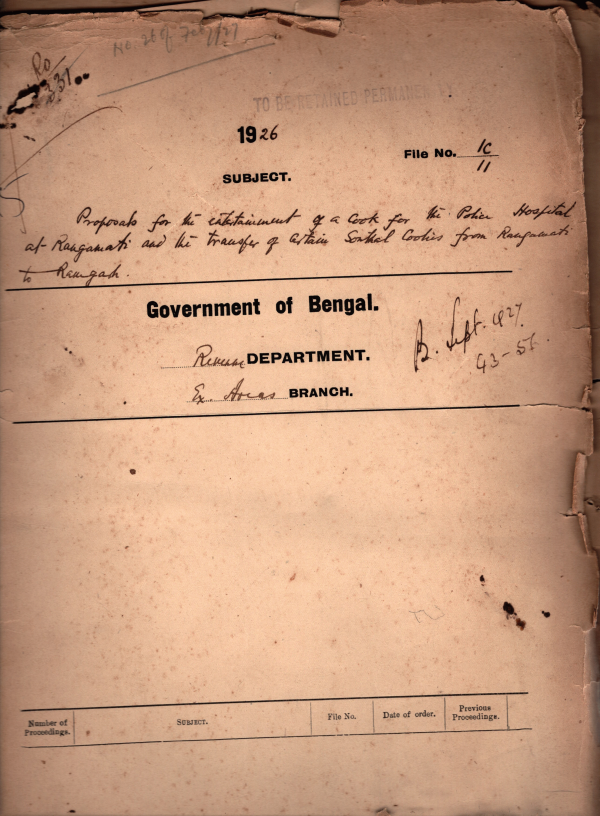 No. 26 of Feb 1927
Ro
331
TO BE RETAINED PERMANENTLY
1926
File No. 1C/11
SUBJECT.
Proposals for the entertainment of a Cook for the Police Hospital
at Rangamati and the transfer of certain Sonthal Coolies from Rangamati
to Ramgarh.
Government of Bengal.
B. Sept. 1927.
43-56.
Revenue DEPARTMENT.
Ex. Areas BRANCH.
Number of Proceedings.
SUBJECT.
File No.
Date of order.
Previous Proceedings.